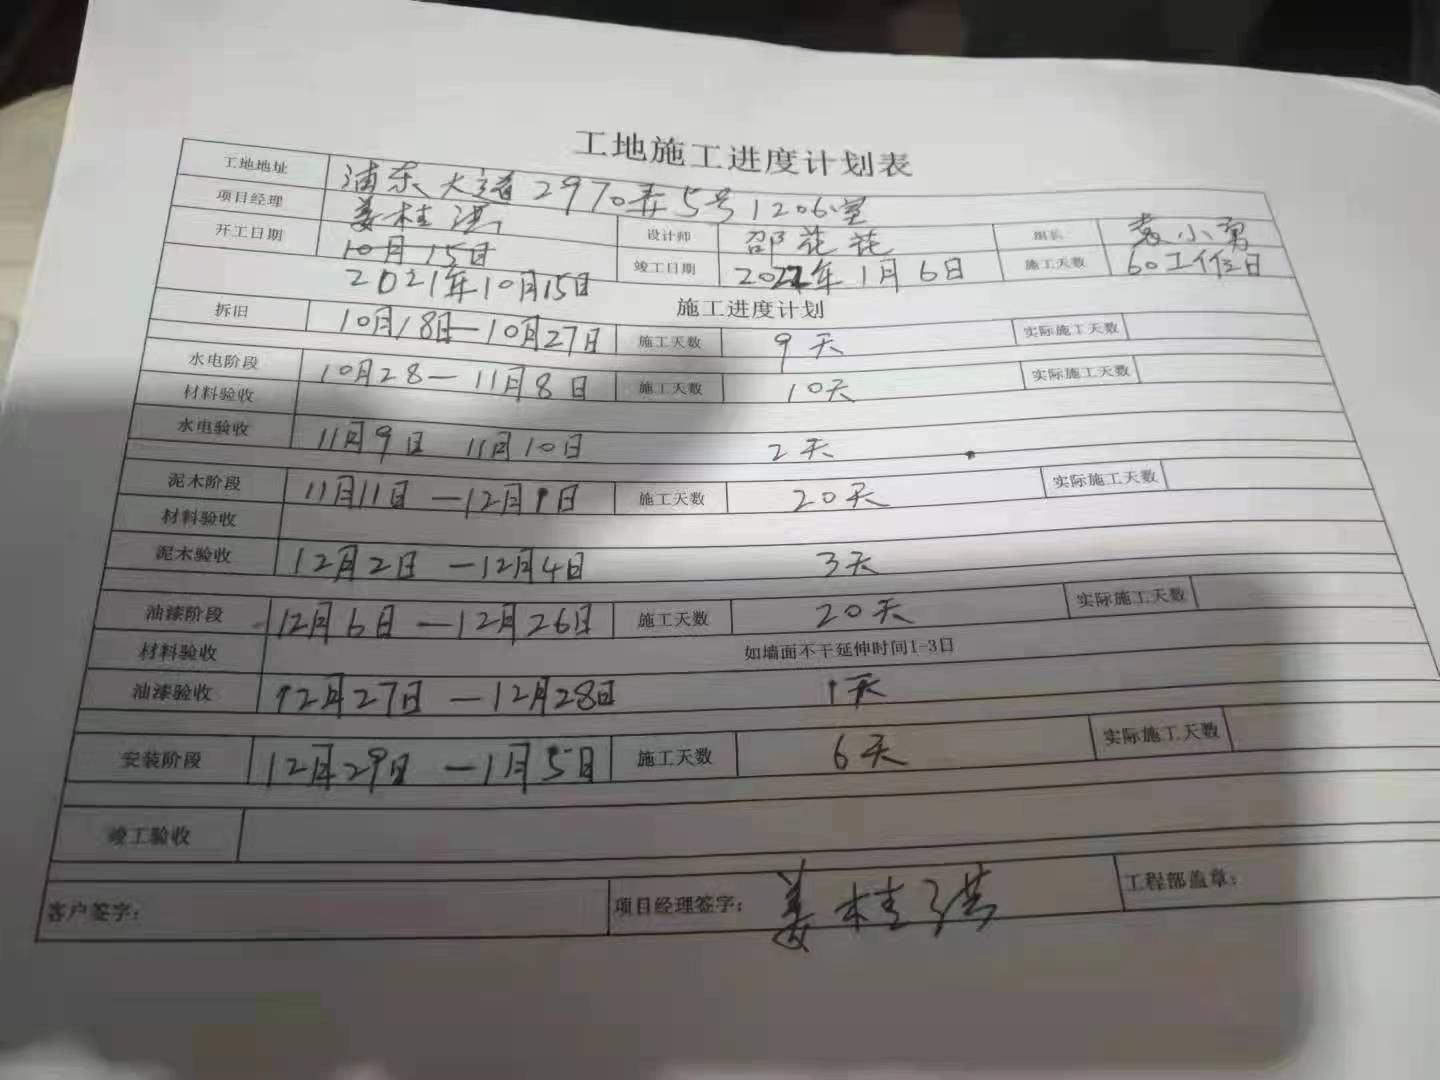 工地施工进度计划表
工地地址 浦东大道2970弄5号1206室
项目经理 姜桂洪 设计师 邵花花 组长 袁小勇
开工日期 10月15日 竣工日期 2022年1月6日 施工天数 60工作日
2021年10月15日
施工进度计划
拆旧 10月18日—10月27日 施工天数 9天 实际施工天数
水电阶段 10月28—11月8日 施工天数 10天 实际施工天数
材料验收
水电验收 11月9日 11月10日 2天
泥木阶段 11月11日—12月1日 施工天数 20天 实际施工天数
材料验收
泥木验收 12月2日—12月4日 3天
油漆阶段 12月6日—12月26日 施工天数 20天 实际施工天数
材料验收 如墙面不干延伸时间1-3日
油漆验收 12月27日—12月28日 1天
安装阶段 12月29日—1月5日 施工天数 6天 实际施工天数
竣工验收
客户签字： 项目经理签字：姜桂洪 工程部盖章：